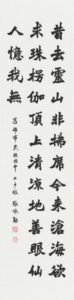 昔去靈山非拂席今來滄海欲
求珠楞伽頂上清涼地善眼仙
人憶我無